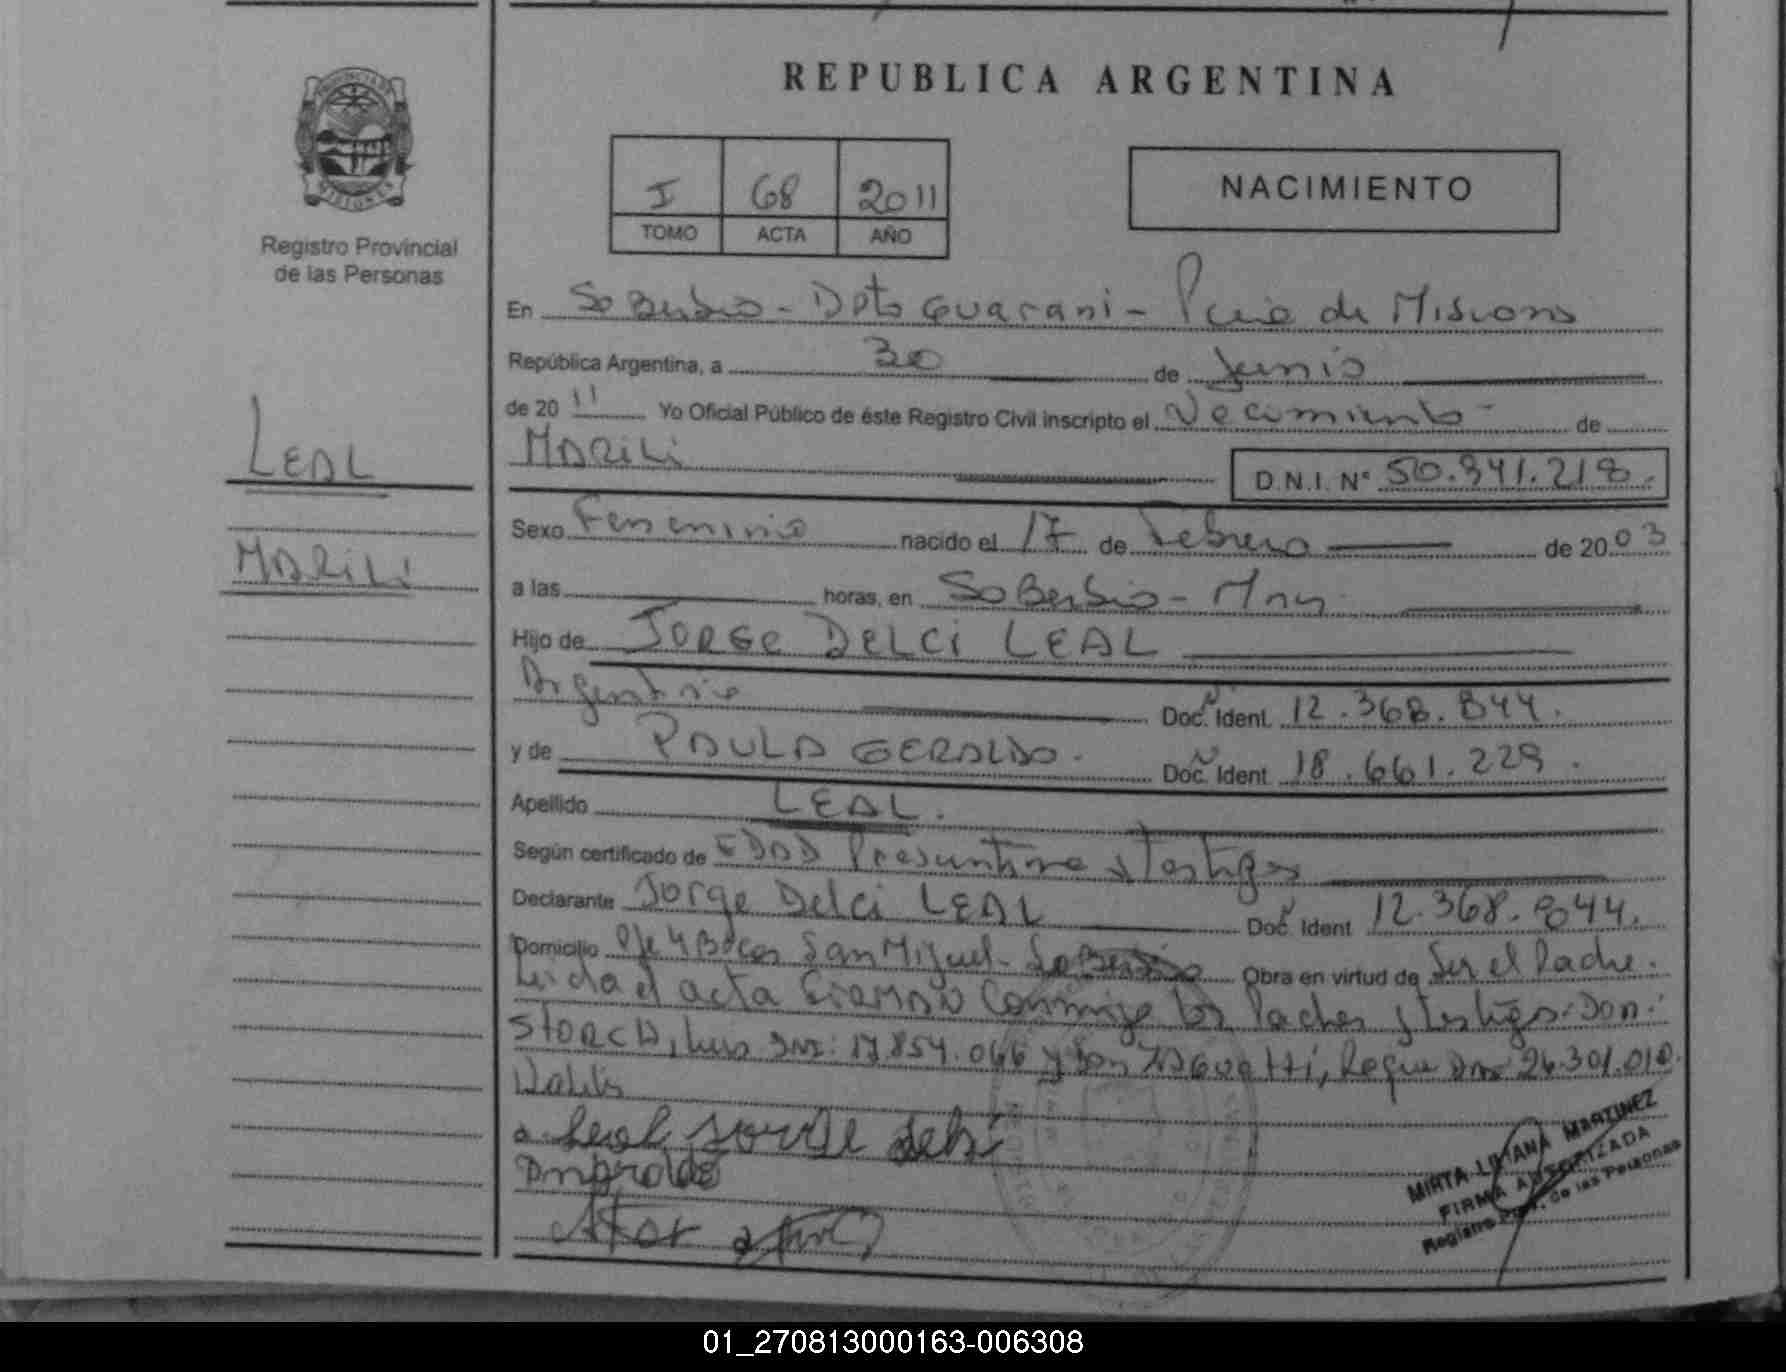 REPUBLICA ARGENTINA
PROVINCIA DE
MISIONES
Registro Provincial
de las Personas
I 68 2011
TOMO ACTA AÑO
NACIMIENTO
En Soberbio - Dpto Guarani - Pcia de Misiones
República Argentina, a 30 de Junio
de 2011 Yo Oficial Público de éste Registro Civil inscripto el Nacimiento - de
MARILI D.N.I. N° 50.941.218.
LEAL
MARILI
Sexo Femenino nacido el 17 de Febrero de 2003
a las horas, en Soberbio - Mnes
Hijo de JORGE DELCI LEAL
Argentina Doc. Ident. 12.368.844.
y de PAULA GERALDO. Doc. Ident 18.661.229.
Apellido LEAL.
Según certificado de EDAD Presuntiva y testigos
Declarante Jorge Delci LEAL Doc. Ident 12.368.844.
Domicilio 4 Bocas San Miguel - Soberbio Obra en virtud de Ser el Padre.
Leida el acta FIRMAN Conmigo los Padres y testigos: Don:
STORCH, Luis DNI: 17.854.066 y Don Roque DNI 26.301.018.
Leal Jorge Delci
MIRTA LILIANA MARTINEZ
FIRMA AUTORIZADA
Registro Prov. de las Personas
01_270813000163-006308